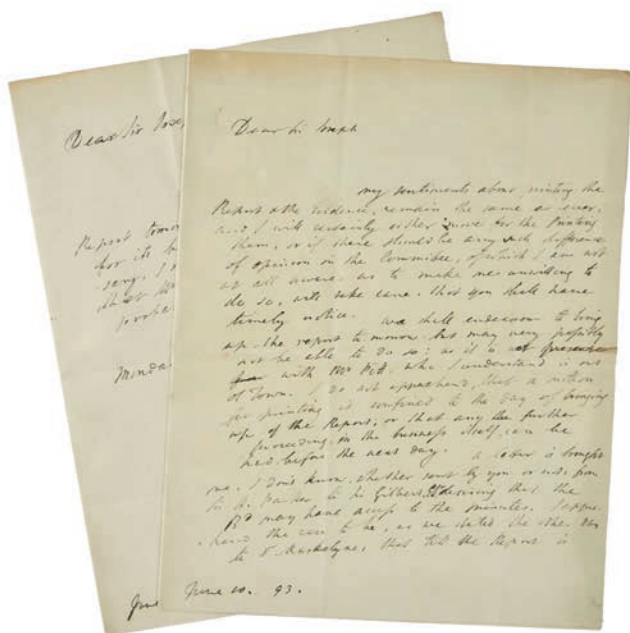 Dear Sir Jose
Report tomor
for its
song. I
that
Monda
June
Dear Sir Joseph
my sentiments about printing the
Report & the Evidence, remain the same as ever,
and I will certainly either move for the Printing
them, or if there should be any such difference
of opinion on the Committee, of which I am not
at all aware, as to make me unwilling to
do so, will take care that you shall have
timely notice. We shall endeavour to bring
up the report to morrow, but may very possibly
not be able to do so: as it is at present
with Mr Pitt, who I understand is out
of Town. I do not apprehend, that a motion
for printing is confined to the day of bringing
up of the Report, or that any the further
proceeding in the business itself, can be
had before the next day. a letter is brought
me, I don't know, whether sent by you or not, from
to Sir Gilbert, desiring that the
Bd may have access to the minutes. I appre-
hend the case to be, as we stated the other day
to Dr Maskelyne, that till the Report is
June 10. 93.